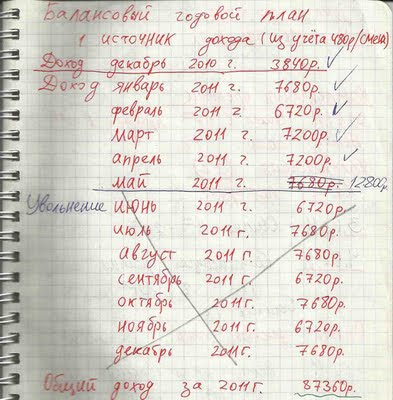 Балансовый годовой план
1 источник дохода (из учёта 480р/смена)
Доход декабрь 2010 г. 3840р.
Доход январь 2011 г. 7680р.
февраль 2011 г. 6720р.
март 2011 г. 7200р.
апрель 2011 г. 7200р.
май 2011 г. 7680р. 12800р.
Увольнение июнь 2011 г. 6720р.
июль 2011 г. 7680р.
август 2011 г. 7680р.
сентябрь 2011 г. 6720р.
октябрь 2011 г. 7680р.
ноябрь 2011 г. 6720р.
декабрь 2011 г. 7680р.
Общий доход за 2011 г. 87360р.